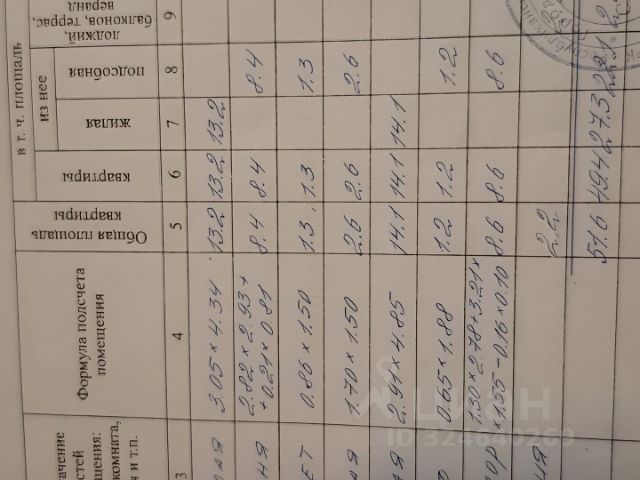 ачение
стей
щения:
комната,
и т.п.
Формула подсчета
помещения
Общая площадь
квартиры
в т. ч. площадь
квартиры
из нее
жилая
подсобная
лоджий,
балконов, террас,
веранд
3 4 5 6 7 8 9
ая 3.05 × 4.34 13.2 13.2 13.2
ня 2.82 × 2.93 + 8.4 8.4 8.4
+ 0.21 × 0.81
ЕТ 0.86 × 1.50 1.3 1.3 1.3
ая 1.70 × 1.50 2.6 2.6 2.6
ая 2.91 × 4.85 14.1 14.1 14.1
0.65 × 1.88 1.2 1.2 1.2
ОР 1.30 × 2.78 + 3.21 × 8.6 8.6 8.6
× 1.55 - 0.16 × 0.10
ия 2.2
51.6 49.4 27.3 22.1
циан
ID 324640269